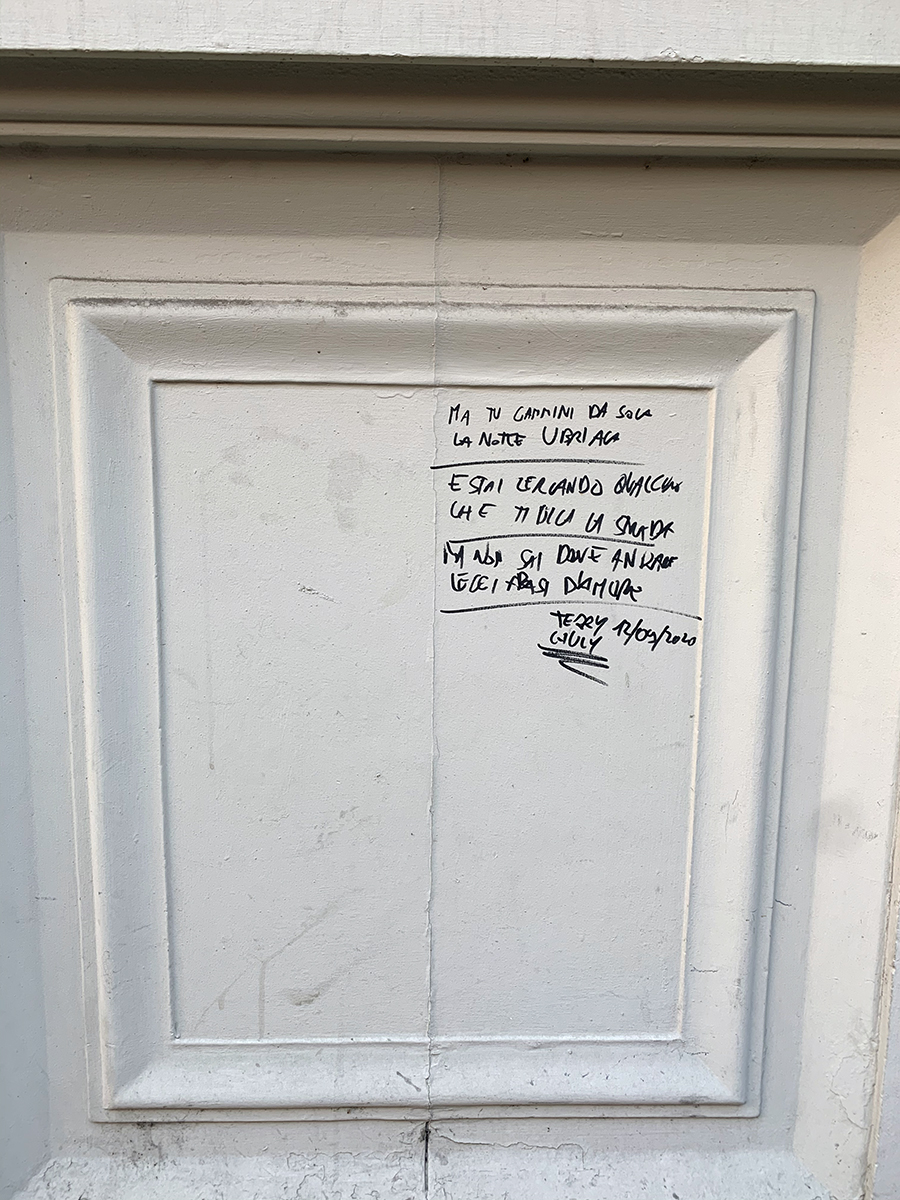 MA TU CAMMINI DA SOLA
LA NOTTE UBRIACA
E STAI CERCANDO QUALCUNO
CHE TI DICA LA STRADA
MA NON SAI DOVE ANDARE
LEGGI FRASI D'AMORE
TERRY 12/09/2020
GIULY